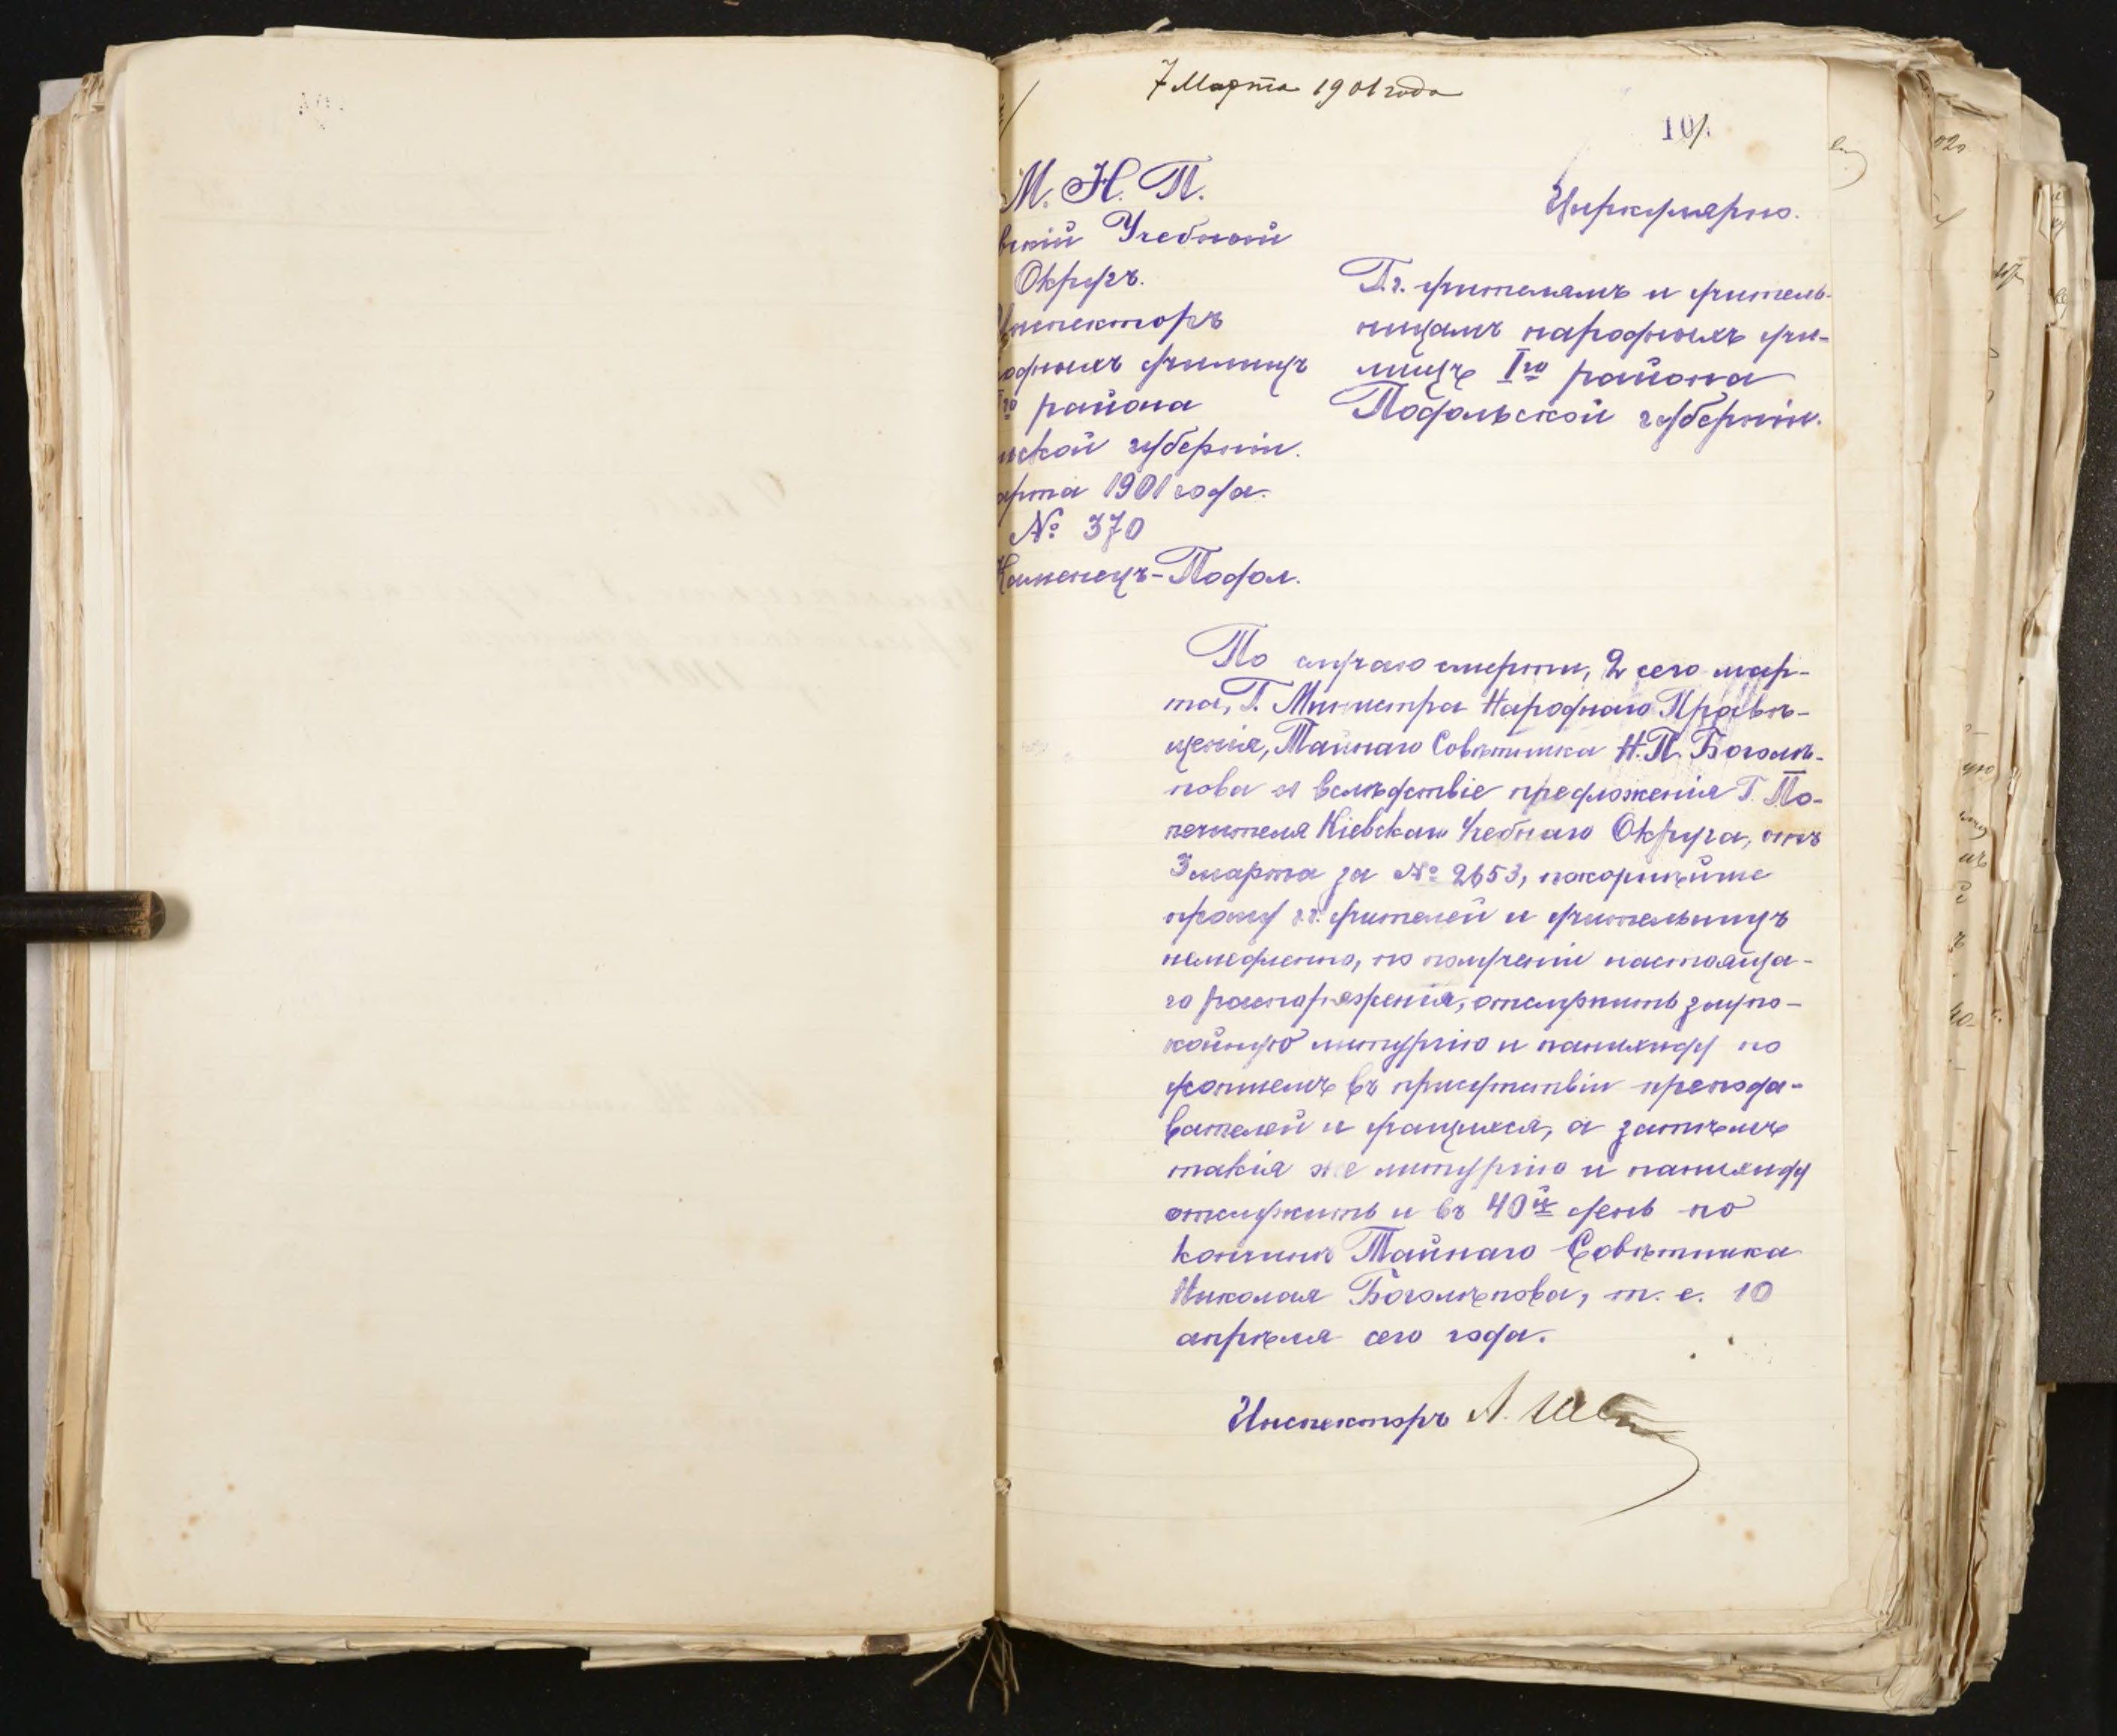 7 Марта 1901 года
101
М. Н. П.
вскій Учебный
Округъ.
Инспекторъ
одныхъ училищъ
го района
ьской губерніи.
арта 1901 года.
№ 370
Каменецъ-Подол.
Циркулярно.
Г.г. учителямъ и учитель-
ницамъ народныхъ учи-
лищъ Iго района
Подольской губерніи.
По случаю смерти, 2 сего мар-
та, Г. Министра Народнаго Просвѣ-
щенія, Тайнаго Совѣтника Н. П. Боголѣ-
пова и вслѣдствіе предложенія Г. По-
печителя Кіевскаго Учебнаго Округа, отъ
3 марта за № 2653, покорнѣйше
прошу г.г. учителей и учительницъ
немедленно, по полученіи настояща-
го распоряженія, отслужить заупо-
койную литургію и панихиду по
усопшемъ въ присутствіи препода-
вателей и учащихся, а затѣмъ
такія же литургію и панихиду
отслужить и въ 40й день по
кончинѣ Тайнаго Совѣтника
Николая Боголѣпова, т. е. 10
апрѣля сего года.
Инспекторъ А.